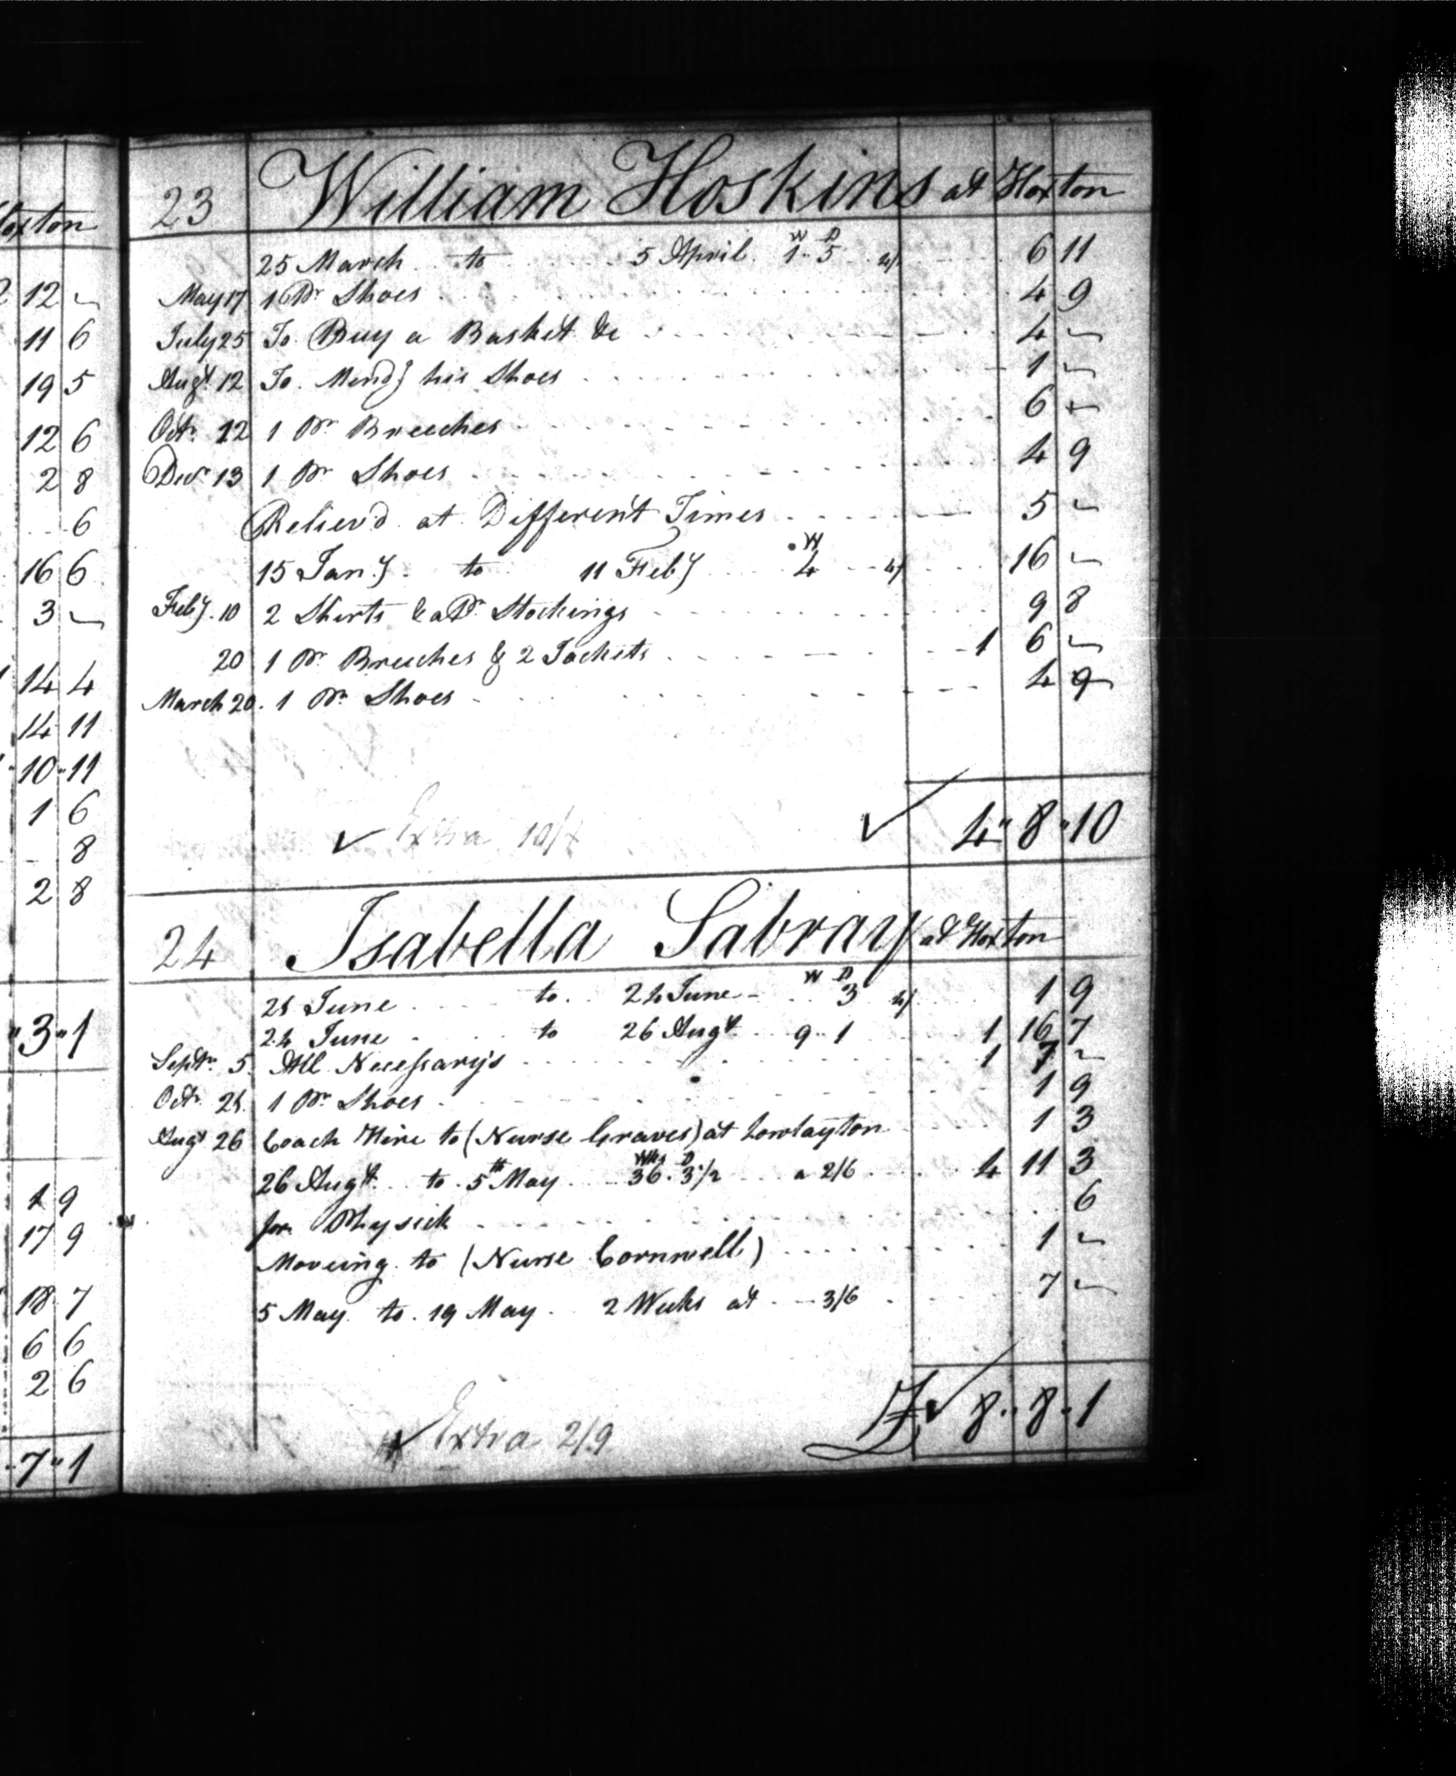 oxton
12 ~
11 6
19 5
12 6
2 8
6
16 6
3 ~
14 4
14 11
10 11
1 6
8
2 8
" 3 " 1
1 9
17 9
18 7
6 6
2 6
7 " 1
23 William Hoskins at Hoxton
25 March to 5 April W 1 D 5 4/ 6 11
May 17 1 Pr Shoes 4 9
July 25 To Buy a Basket &c 4 ~
Augt 12 To Mendg his Shoes 1 ~
Octr 12 1 Pr Breeches 6 ~
Decr 13 1 Pr Shoes 4 9
Reliev'd at Different Times 5 ~
15 Jany to 11 Feby W 4 4/ 16 ~
Feby 10 2 Shirts & a Pr Stockings 9 8
20 1 Pr Breeches & 2 Jackets 1 6 ~
March 20 1 Pr Shoes 4 9
Extra 4 " 8 " 10
24 Isabella Sabray at Hoxton
21 June to 24 June W D 3 4/ 1 9
24 June to 26 Augt 9 1 1 16 7
Septr 5 All Necessary's 1 7 ~
Octr 21 1 Pr Shoes 1 9
Augt 26 Coach Hire to (Nurse Graves) at Lowlayton 1 3
26 Augt to 5th May Wks 36 D 3 1/2 a 2/6 4 11 3
for Physick 6
Moveing to (Nurse Cornwell) 1 ~
5 May to 19 May 2 Weeks at 3/6 7 ~
Extra 2/9 £ 8 " 8 " 1